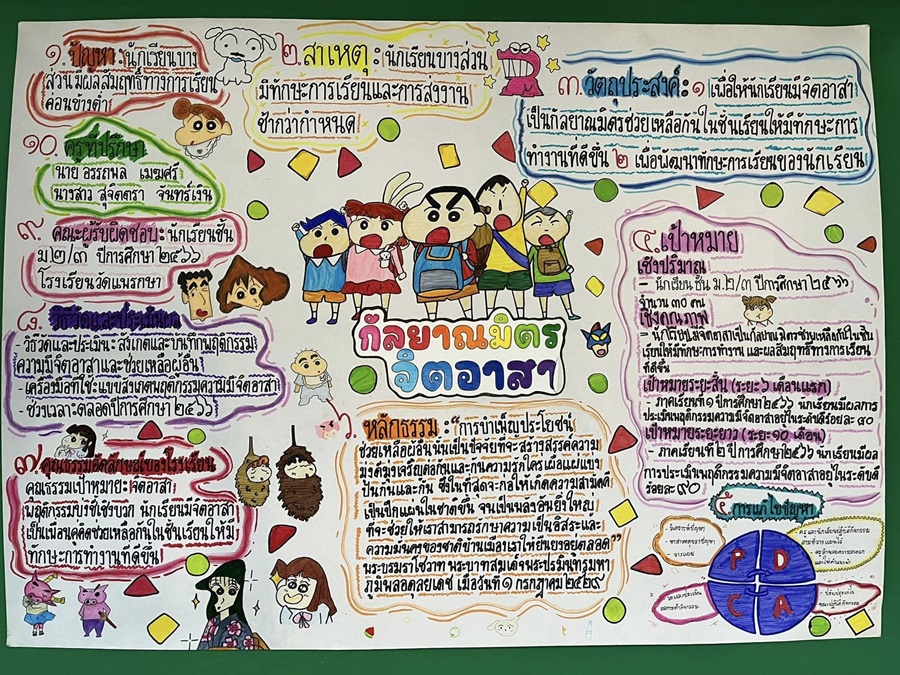 ๑. ปัญหา : นักเรียนบาง
ส่วนมีผลสัมฤทธิ์ทางการเรียน
ค่อนข้างต่ำ
๒. สาเหตุ : นักเรียนบางส่วน
มีทักษะการเรียนและการส่งงาน
ช้ากว่ากำหนด
๓. วัตถุประสงค์ : ๑ เพื่อให้นักเรียนมีจิตอาสา
เป็นกัลยาณมิตรช่วยเหลือกันในชั้นเรียนให้มีทักษะการ
ทำงานที่ดีขึ้น ๒ เพื่อพัฒนาทักษะการเรียนของนักเรียน
๔. เป้าหมาย
เชิงปริมาณ
- นักเรียนชั้น ม.๒/๓ ปีการศึกษา ๒๕๖๖
จำนวน ๓๐ คน
เชิงคุณภาพ
- นักเรียนมีจิตอาสาเป็นกัลยาณมิตรช่วยเหลือกันในชั้น
เรียนให้มีทักษะการทำงาน และผลสัมฤทธิ์ทางการเรียน
ที่ดีขึ้น
เป้าหมายระยะสั้น (ระยะ ๖ เดือนแรก)
- ภาคเรียนที่ ๑ ปีการศึกษา ๒๕๖๖ นักเรียนมีผลการ
ประเมินพฤติกรรมความมีจิตอาสาอยู่ในระดับดีร้อยละ ๘๐
เป้าหมายระยะยาว (ระยะ ๑๐ เดือน)
- ภาคเรียนที่ ๒ ปีการศึกษา ๒๕๖๖ นักเรียนมีผล
การประเมินพฤติกรรมความมีจิตอาสาอยู่ในระดับดี
ร้อยละ ๙๐
๕ การแก้ไขปัญหา
- วิเคราะห์ปัญหา
- หาสาเหตุของปัญหา
- วางแผน
P D
C A
กัลยาณมิตร
จิตอาสา
๖. หลักธรรม : "การบำเพ็ญประโยชน์
ช่วยเหลือผู้อื่นนั้นเป็นปัจจัยที่จะสร้างสรรค์ความ
มุ่งดีมุ่งเจริญต่อกันและกันความรักใคร่เผื่อแผ่แบ่ง
ปันกันและกัน ซึ่งในที่สุดจะก่อให้เกิดความสามัคคี
เป็นปึกแผ่นในชาติขึ้น จนเป็นพลังอันยิ่งใหญ่
ที่จะช่วยให้เราสามารถรักษาความเป็นอิสระและ
ความมั่นคงของชาติบ้านเมืองเราให้ยืนยงอยู่ตลอด"
พระบรมราโชวาท พระบาทสมเด็จพระปรมินทรมหา
ภูมิพลอดุลยเดช เมื่อวันที่ ๑ กรกฎาคม ๒๕๒๙
๗. คุณธรรมอัตลักษณ์ของโรงเรียน
คุณธรรมเป้าหมาย : จิตอาสา
พฤติกรรมบ่งชี้เชิงบวก นักเรียนมีจิตอาสา
เป็นเพื่อนคู่คิดช่วยเหลือกันในชั้นเรียนให้มี
ทักษะการทำงานที่ดีขึ้น
๘. วิธีวัดและประเมินผล
- วิธีวัดและประเมิน : สังเกตและบันทึกพฤติกรรม
ความมีจิตอาสาและช่วยเหลือผู้อื่น
- เครื่องมือที่ใช้ : แบบสังเกตพฤติกรรมความมีจิตอาสา
- ช่วงเวลา : ตลอดปีการศึกษา ๒๕๖๖
๙. คณะผู้รับผิดชอบ : นักเรียนชั้น
ม ๒/๓ ปีการศึกษา ๒๕๖๖
โรงเรียนวัดแมรกษา
๑๐. ครูที่ปรึกษา
นาย อรรถพล เมฆศรี
นางสาว สุจิตตรา จันทร์เงิน